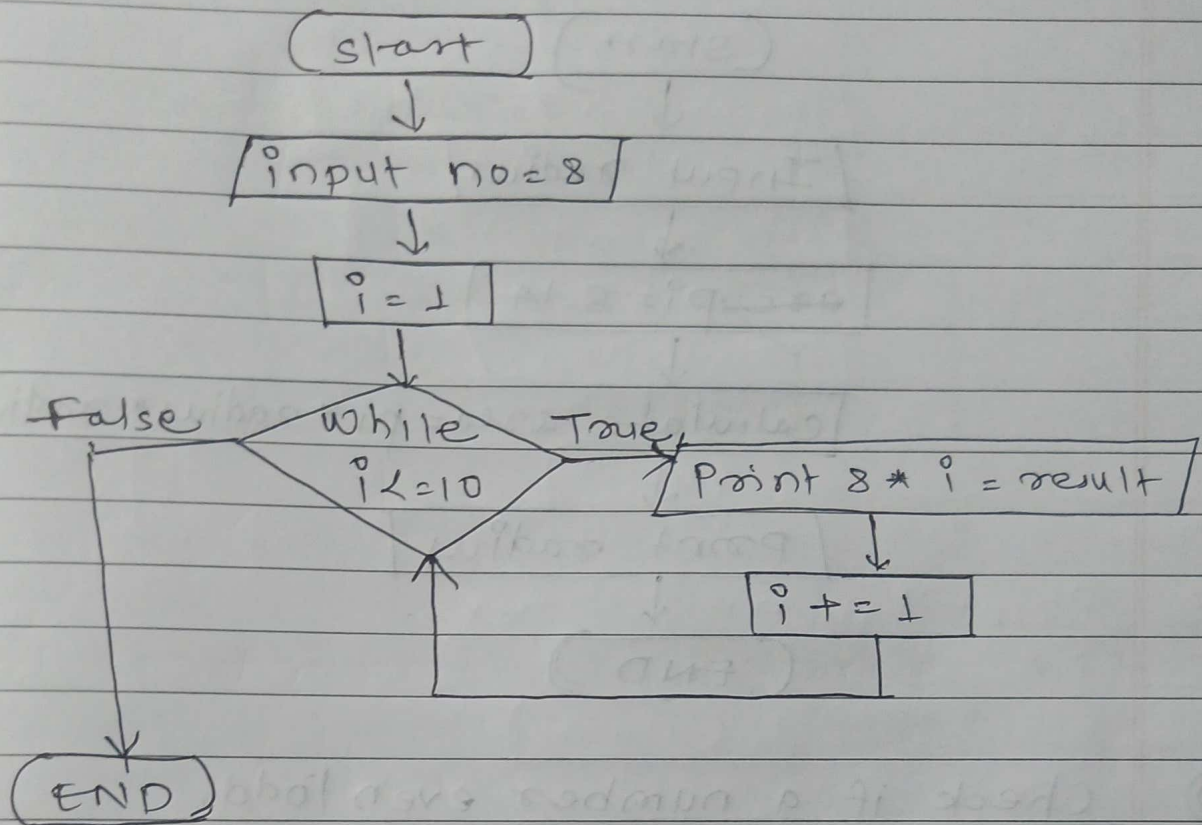 Start
input no = 8
i = 1
False
While
i <= 10
True
Print 8 * i = result
i += 1
END